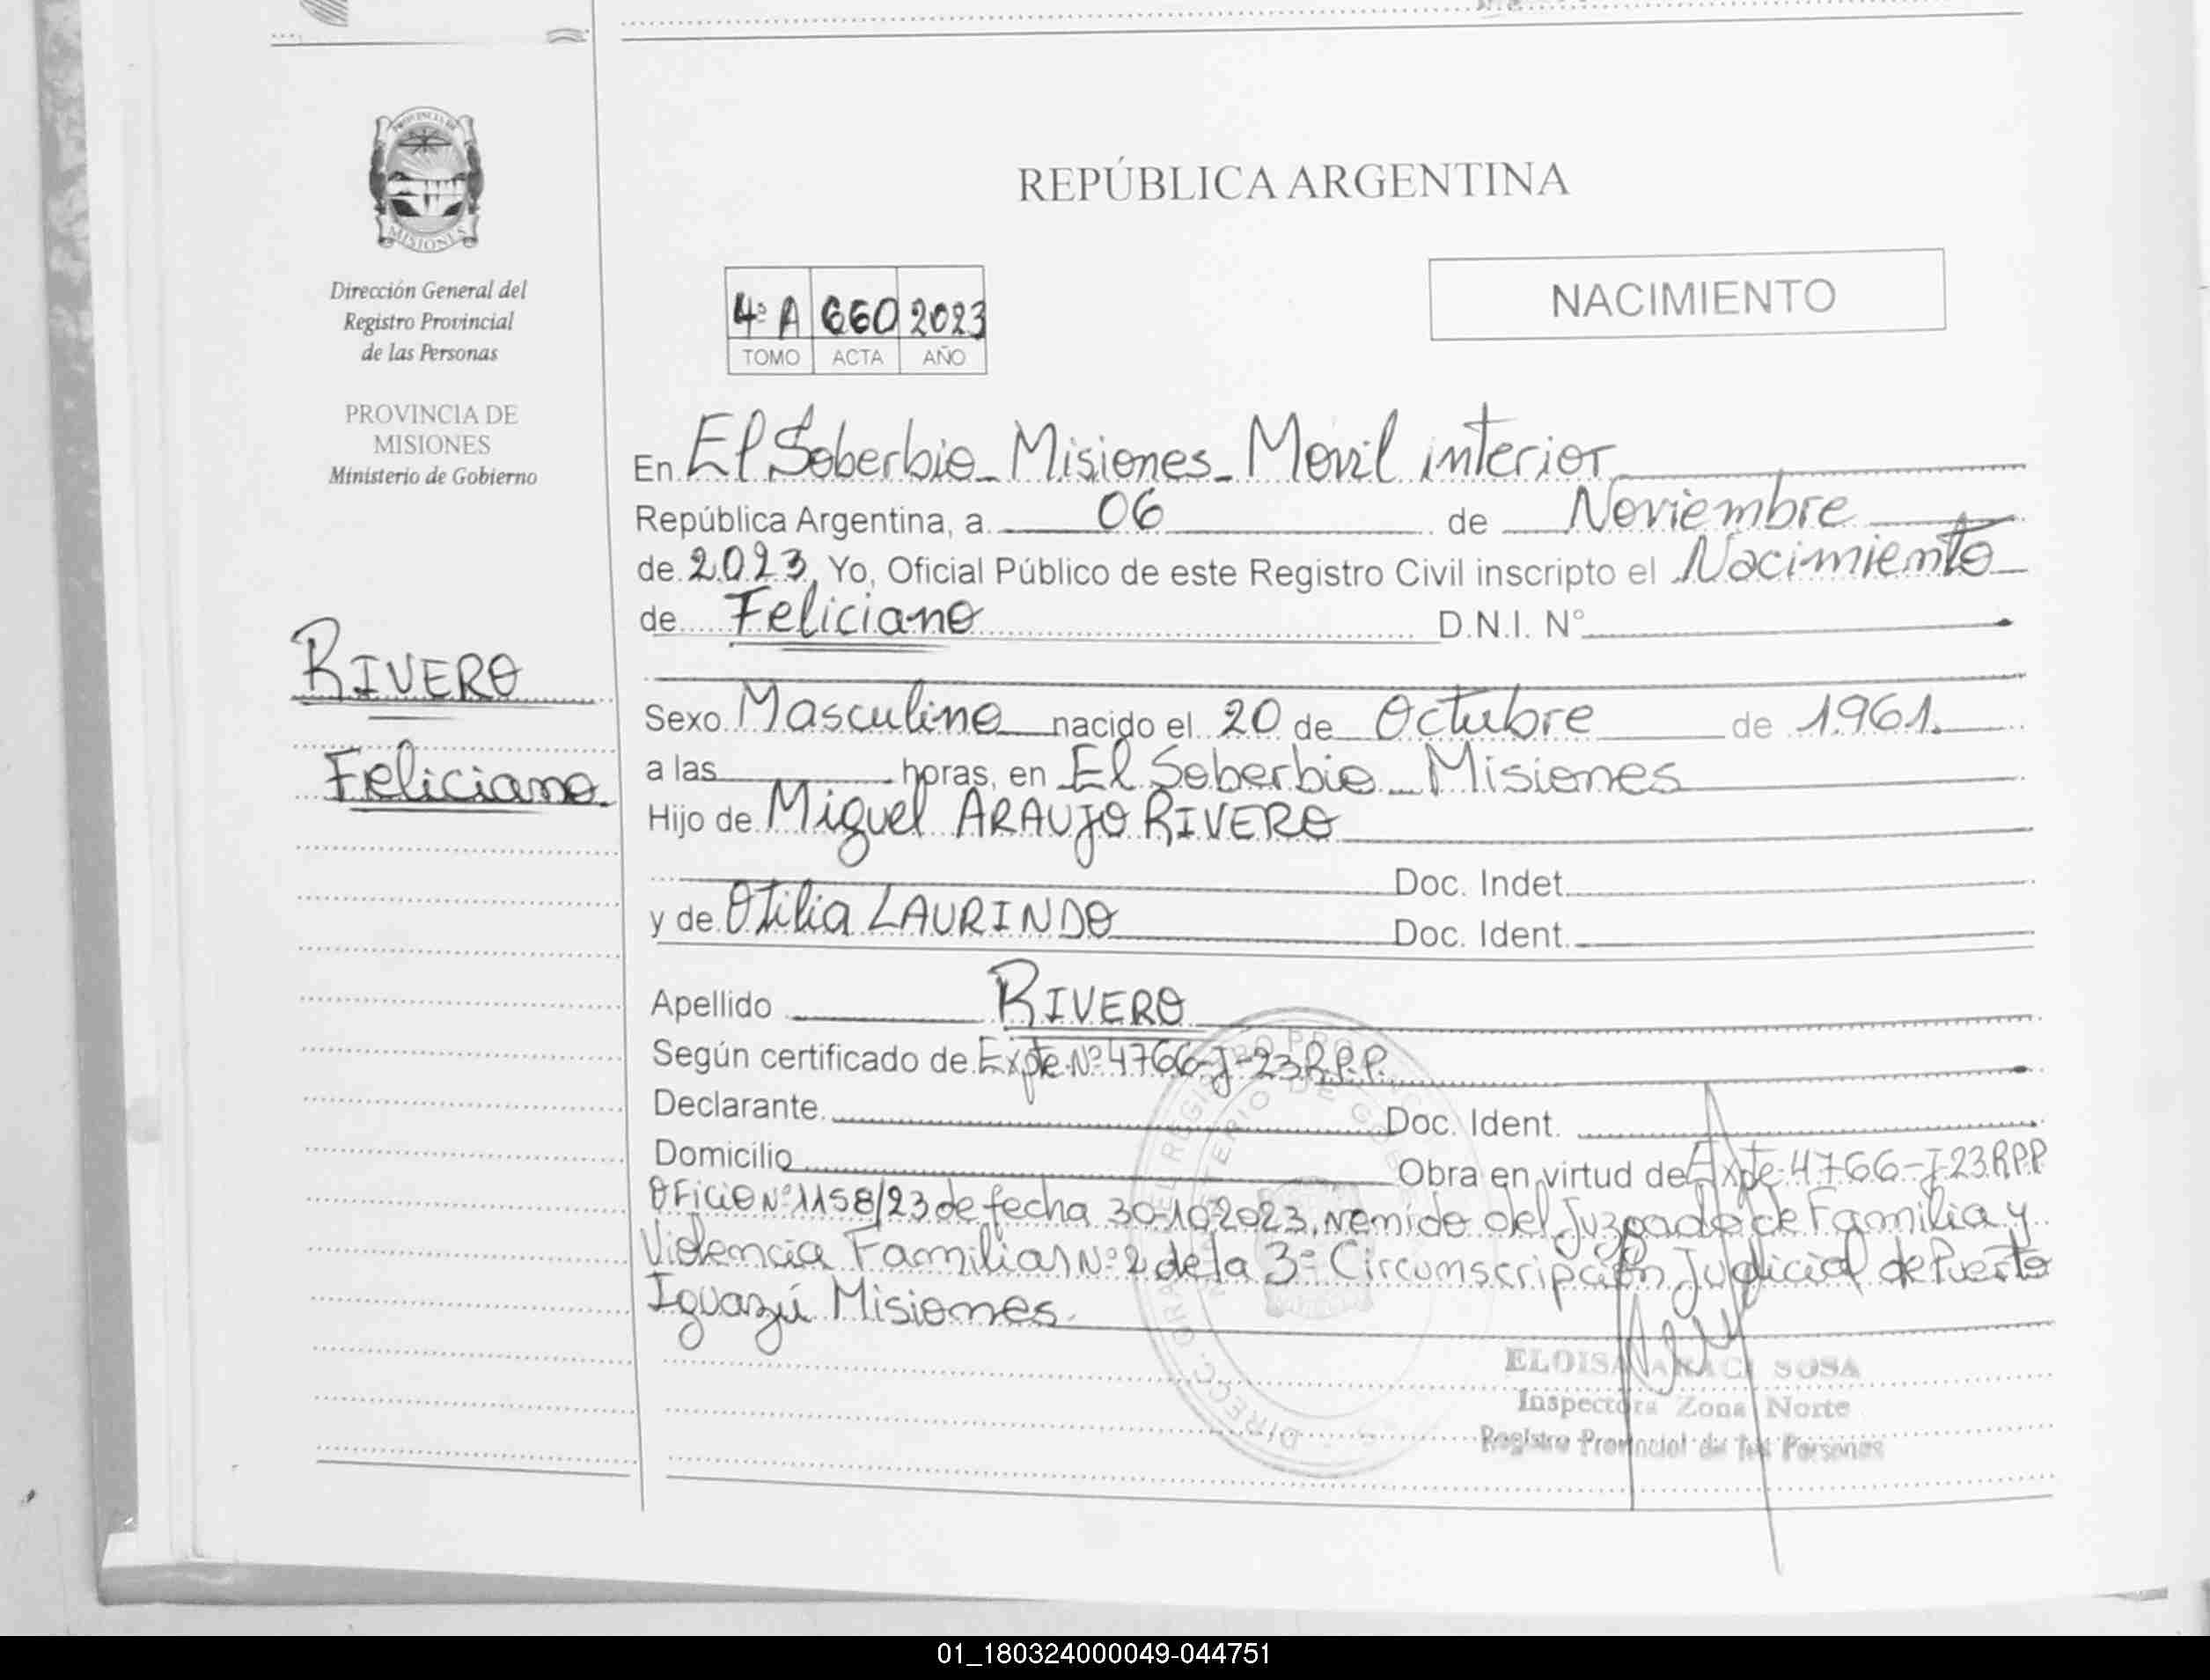 PROVINCIA DE
MISIONES
Dirección General del
Registro Provincial
de las Personas
PROVINCIA DE
MISIONES
Ministerio de Gobierno
RIVERO
Feliciano.
REPÚBLICA ARGENTINA
NACIMIENTO
4º A 660 2023
TOMO ACTA AÑO
En El Soberbio_ Misiones_ Movil interior
República Argentina, a 06 de Noviembre
de 2.023, Yo, Oficial Público de este Registro Civil inscripto el Nacimiento
de Feliciano D.N.I. Nº
Sexo Masculino nacido el 20 de Octubre de 1961.
a las horas, en El Soberbio_ Misiones
Hijo de Miguel ARAUJO RIVERO
Doc. Indet.
y de Otilia LAURINDO Doc. Ident.
Apellido RIVERO
Según certificado de Expte Nº 4766-J-23 R.P.P.
Declarante Doc. Ident.
Domicilio Obra en virtud de Expte 4766-J-23 RPP
Oficio Nº 1158/23 de fecha 30-10-2023, del Juzgado de Familia y
Violencia Familiar Nº 2 de la 3º Circumscripción Judicial de Puerto
Iguazú Misiones.
ELOISA ARACI SOSA
Inspectora Zona Norte
Registro Provincial de las Personas
01_180324000049-044751